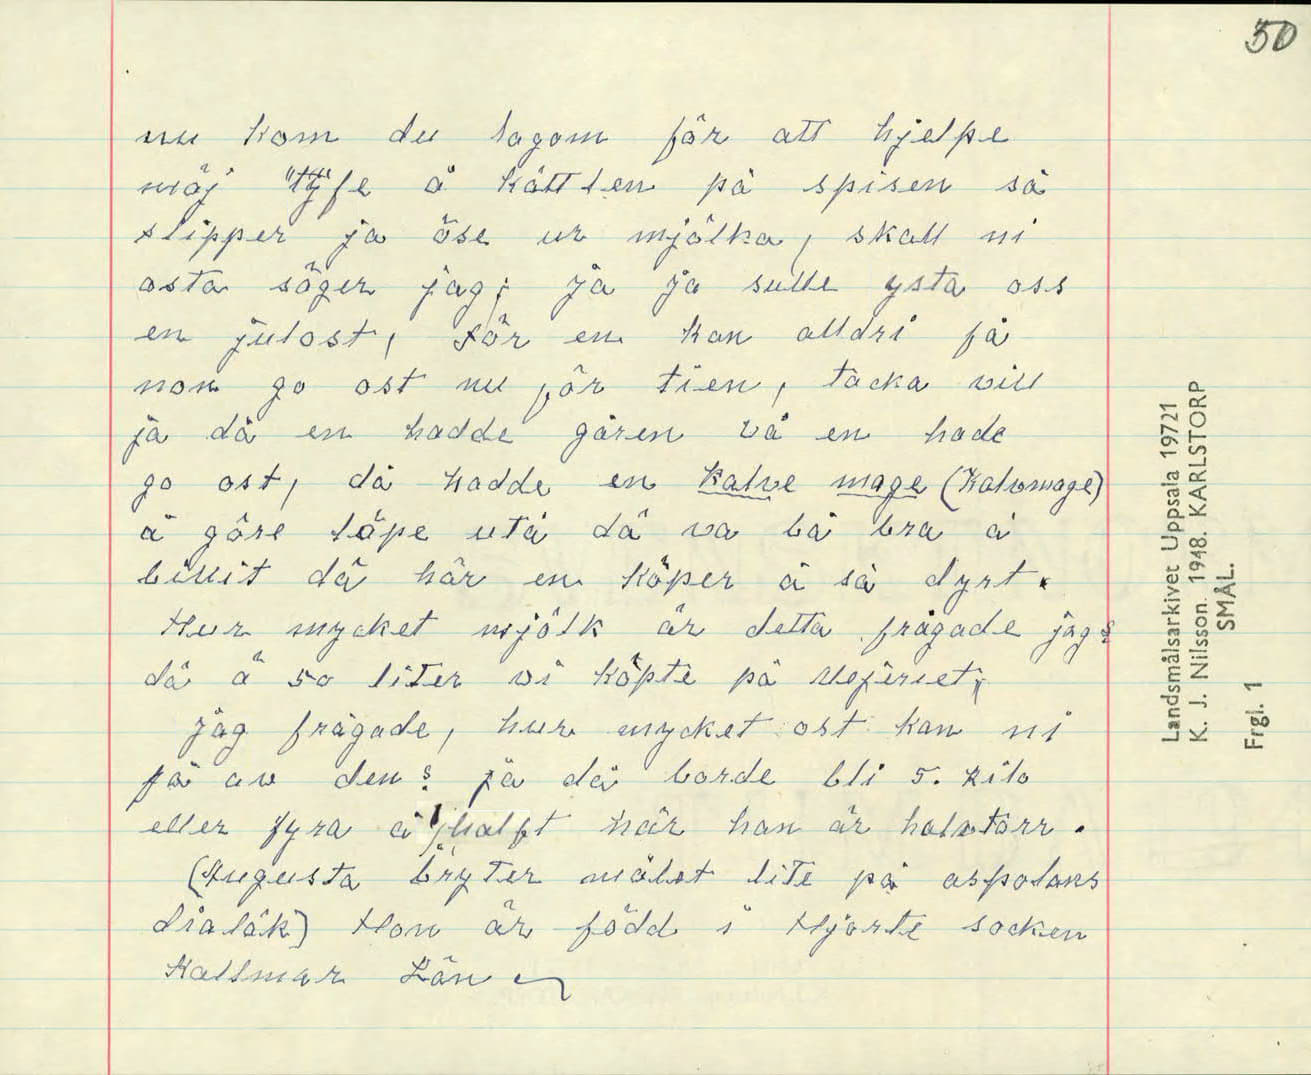 50
nu kom du lagom får att hjelpe
mäj lÿfe å kättlen på spisen så
slipper ja öse ur mjölka, skall ni
osta säger jag; ja ja sulle ysta oss
en julost, får en kan alldri få
non go ost nu för tien, tacka vill
ja då en hadde gåren va en hade
go ost, då hadde en kalve mage (Kalvmage)
å göre löpe utå dä va bå bra å
billit dä här en köper ä så dyrt.
Hur mycket mjölk är detta frågade jag?
dä ä 50 liter vi köpte på Mejeriet;
jag frågade, hur mycket ost kan ni
få av den? ja dä borde bli 5. kilo
eller fyra å halft när han är halvtorr.
(Augusta bryter målet lite på aspolans
dialäk) Hon är född i Hjorte socken
Kallmar Län
Landsmålsarkivet Uppsala 19721
K. J. Nilsson. 1948. KARLSTORP
SMÅL.
Frgl. 1